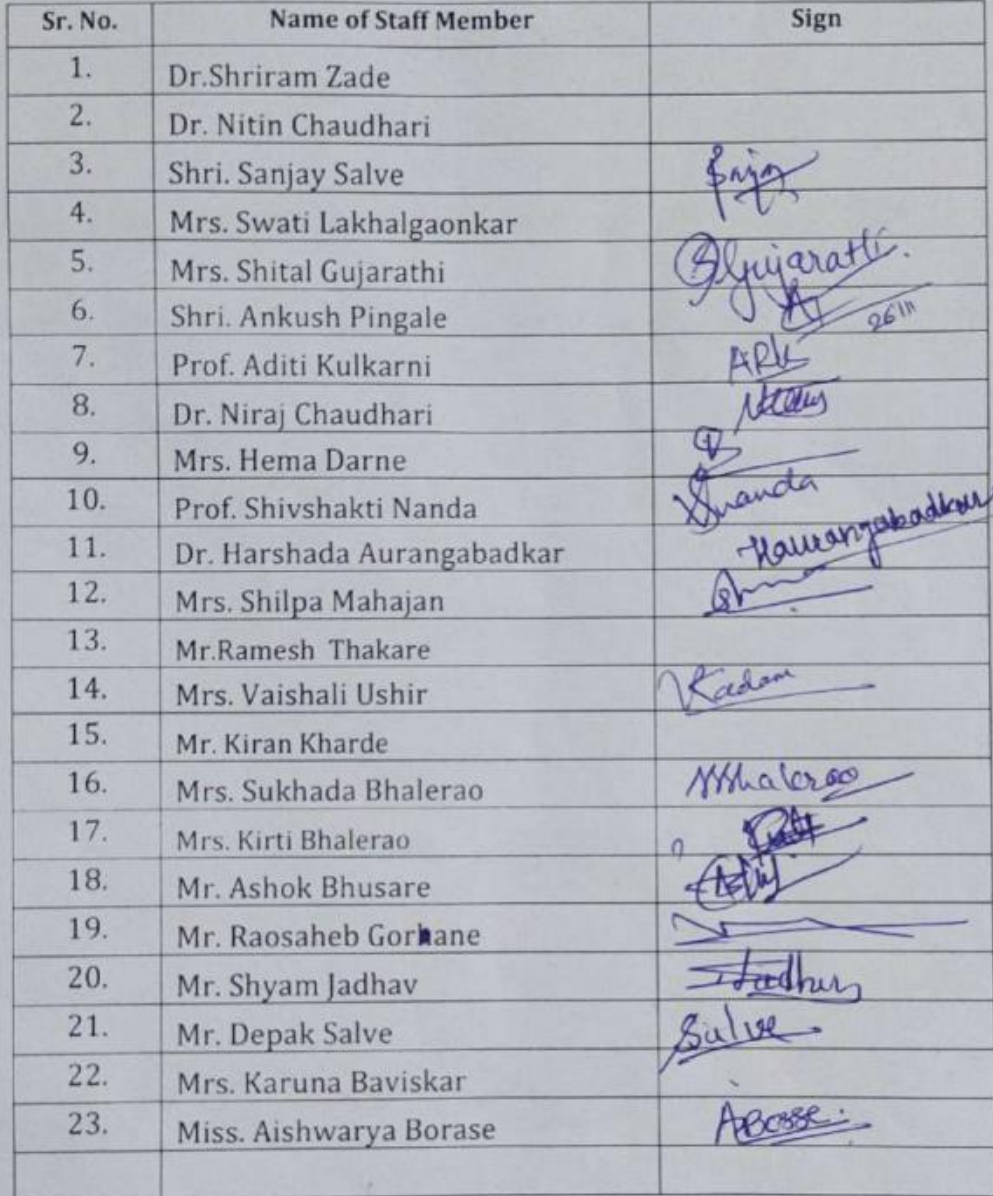 Sr. No. Name of Staff Member Sign
1. Dr.Shriram Zade
2. Dr. Nitin Chaudhari
3. Shri. Sanjay Salve
4. Mrs. Swati Lakhalgaonkar
5. Mrs. Shital Gujarathi SGujarathi.
6. Shri. Ankush Pingale 26/11
7. Prof. Aditi Kulkarni ARK
8. Dr. Niraj Chaudhari
9. Mrs. Hema Darne
10. Prof. Shivshakti Nanda Snanda
11. Dr. Harshada Aurangabadkar Haurangabadkar
12. Mrs. Shilpa Mahajan
13. Mr.Ramesh Thakare
14. Mrs. Vaishali Ushir VKadam
15. Mr. Kiran Kharde
16. Mrs. Sukhada Bhalerao
17. Mrs. Kirti Bhalerao
18. Mr. Ashok Bhusare
19. Mr. Raosaheb Gorhane
20. Mr. Shyam Jadhav
21. Mr. Depak Salve Salve
22. Mrs. Karuna Baviskar
23. Miss. Aishwarya Borase